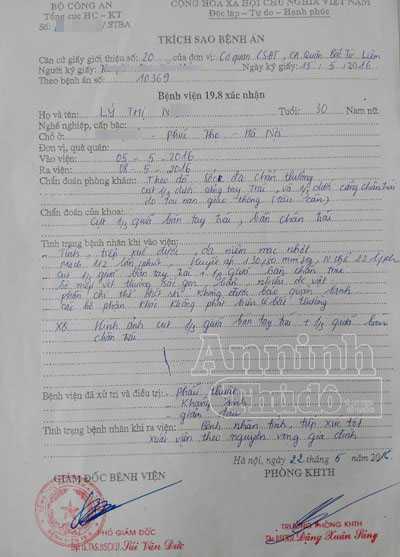 BỘ CÔNG AN
Tổng cục HC - KT
Số: /STBA
CỘNG HÒA XÃ HỘI CHỦ NGHĨA VIỆT NAM
Độc lập - Tự do - Hạnh phúc
TRÍCH SAO BỆNH ÁN
Căn cứ giấy giới thiệu số: 20 của đơn vị: Cơ quan CSĐT, CA Quận Bắc Từ Liêm
Người ký giấy: Ngày ký giấy: 15/5/2016
Theo bệnh án số: 10369
Bệnh viện 19.8 xác nhận
Họ và tên: LÝ THỊ N Tuổi: 30 Nam nữ
Nghề nghiệp, cấp bậc:
Chỗ ở: Phúc Thọ - Hà Nội
Đơn vị, quê quán:
Vào viện: 05-5-2016
Ra viện: 08-5-2016
Chẩn đoán phòng khám: Theo dõi sốc đa chấn thương
cụt 1/3 dưới cẳng tay trái, và 1/3 dưới cẳng chân trái
do tai nạn giao thông (tàu cán)
Chẩn đoán của khoa:
Cụt 1/3 giữa bàn tay trái, bàn chân trái
Tình trạng bệnh nhân khi vào viện:
Tỉnh, tiếp xúc được, da niêm mạc nhợt
Mạch 112 lần/phút. Huyết áp 130/80 mmHg
Cụt 1/3 giữa bàn tay trái + 1/3 giữa bàn chân trái
bề mặt vết thương nhiều dị vật
không được bảo quản lạnh
Các bộ phận khác không phát hiện gì bất thường
XQ: Hình ảnh cụt 1/3 giữa bàn tay trái + 1/3 giữa bàn
chân trái
Anninh
Thủ đô
Bệnh viện đã xử trí và điều trị: - Phẫu thuật
- Kháng sinh
- giảm đau
Tình trạng bệnh nhân khi ra viện: Bệnh nhân tỉnh, tiếp xúc tốt
Xuất viện theo nguyện vọng gia đình
Hà nội, ngày 22 tháng 5 năm 2016
GIÁM ĐỐC BỆNH VIỆN
PHÒNG KHTH
PHÓ GIÁM ĐỐC
Bùi Văn Đức
TRƯỞNG PHÒNG KHTH
Đặng Xuân Sáng